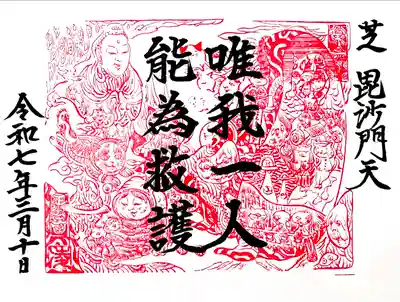 芝 毘沙門天
唯我一人
能為救護
令和七年三月十日